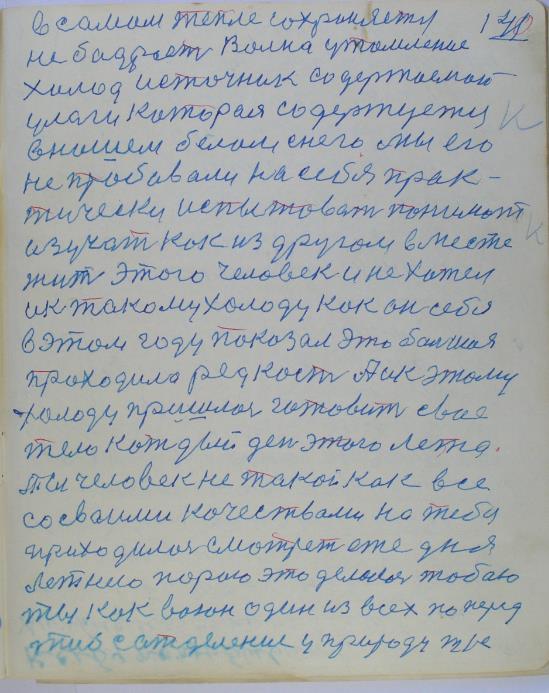 в самом тепле сохроняету 140
не бадрост Волна утомление
холод источник содержаемаю
улаги которая содержуету
в нашем белом снего мы его
не пробавали на себя прак-
тически испытоват понимат
изучат как из другом вместе
жит этого человек и не хотел
ик такому холоду как он себя
в этом году показал это болшая
проходила редкост А ик этому
холоду пришлоя готовит свае
тело каждый ден этого летна.
Ты человек не такой как все
со сваими качествами на тебя
приходилоя смотрет оже дня
летнию пораю это делалоя тобаю
ты как воин один из всех
сотделение у природу тве